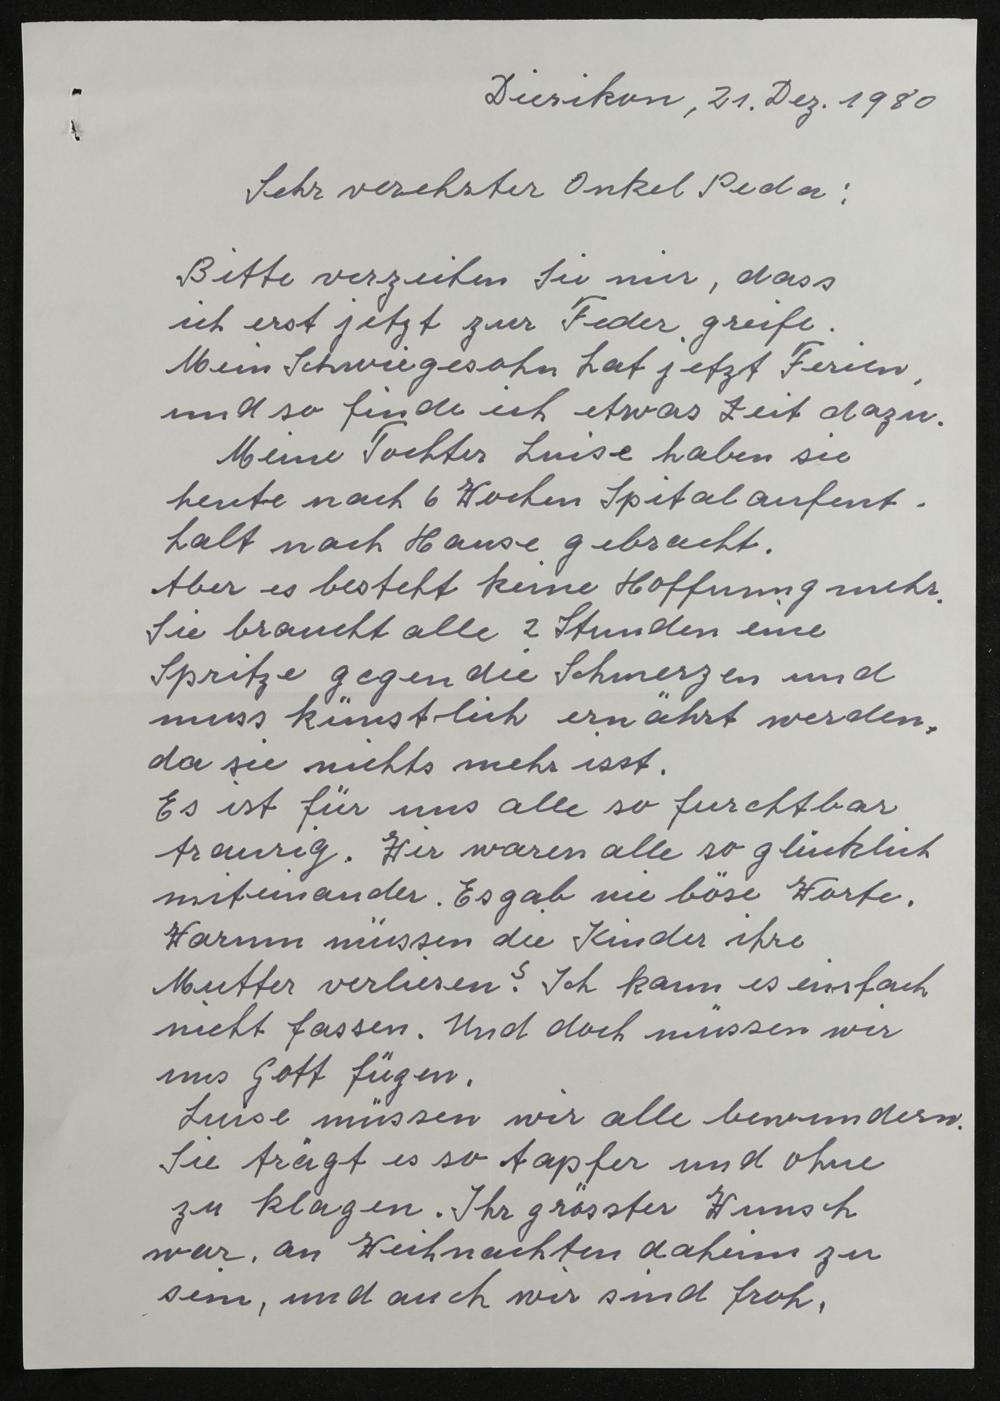 Dierikon, 21. Dez. 1980
Sehr verehrter Onkel Peda:
Bitte verzeihen Sie mir, dass
ich erst jetzt zur Feder greife.
Mein Schwiegesohn hat jetzt Ferien,
und so finde ich etwas Zeit dazu.
Meine Tochter Luise haben sie
heute nach 6 Wochen Spitalaufent-
halt nach Hause gebracht.
Aber es besteht keine Hoffnung mehr.
Sie braucht alle 2 Stunden eine
Spritze gegen die Schmerzen und
muss künstlich ernährt werden,
da sie nichts mehr isst.
Es ist für uns alle so furchtbar
traurig. Wir waren alle so glücklich
miteinander. Es gab nie böse Worte.
Warum müssen die Kinder ihre
Mutter verlieren? Ich kann es einfach
nicht fassen. Und doch müssen wir
uns Gott fügen.
Luise müssen wir alle bewundern.
Sie trägt es so tapfer und ohne
zu klagen. Ihr grösster Wunsch
war, an Weihnachten daheim zu
sein, und auch wir sind froh,